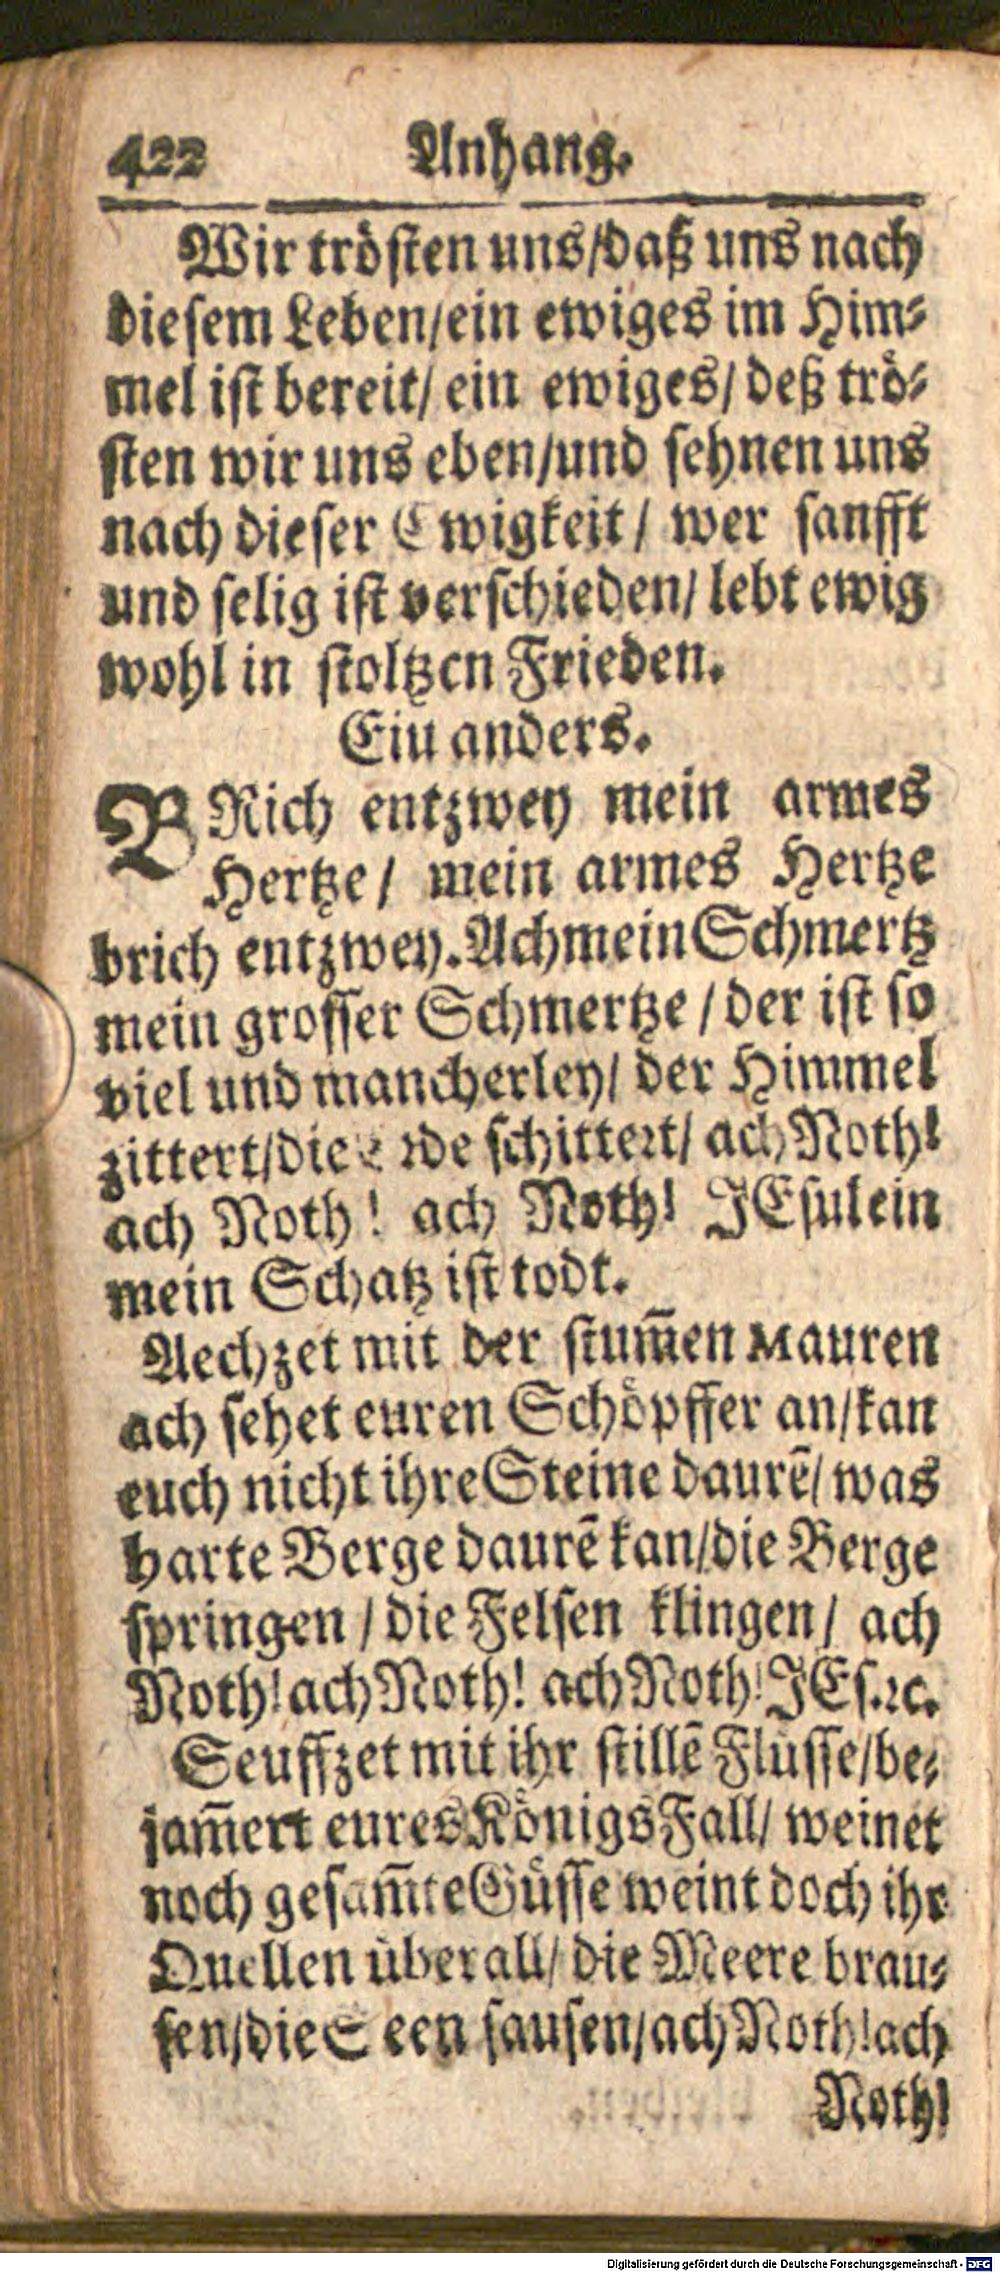 422 Anhang.
Wir trösten uns/daß uns nach
diesem Leben/ein ewiges im Him-
mel ist bereit/ ein ewiges/ deß trö-
sten wir uns eben/und sehnen uns
nach dieser Ewigkeit/ wer sanfft
und selig ist verschieden/ lebt ewig
wohl in stoltzen Frieden.
Eiu anders.
BRich entzwey mein armes
Hertze/ mein armes Hertze
brich entzwey. Ach mein Schmertz
mein grosser Schmertze /der ist so
viel und mancherley/ der Himmel
zittert/die Erde schittert/ ach Noth!
ach Noth! ach Noth! JEsulein
mein Schatz ist todt.
Aechzet mit der stum̃en Mauren
ach sehet euren Schöpffer an/kan
euch nicht ihre Steine daurẽ/ was
harte Berge daurẽ kan/die Berge
springen /die Felsen klingen/ ach
Noth! ach Noth! ach Noth! JEs.ꝛc.
Seuffzet mit ihr stillẽ Flüsse/be-
jam̃ert eures Königs Fall/ weinet
noch gesam̃te Güsse weint doch ihr
Quellen überall/ die Meere brau-
sen/die Seen sausen/ach Noth! ach
Noth!
Digitalisierung gefördert durch die Deutsche Forschungsgemeinschaft - DFG